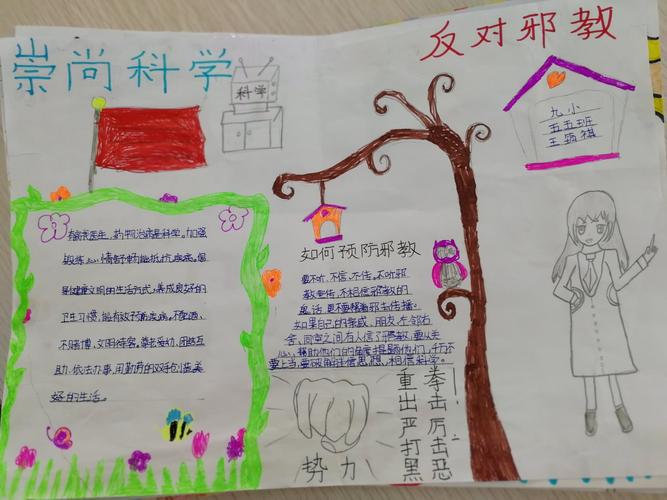 崇尚科学
反对邪教
科学
九小
五五班
王
医生,药物治病是科学。加强
锻炼心情舒畅能抵抗疾病。
是健康文明的生活方式,养成良好的
卫生习惯,能有效子病疾病。
不赌博,文明待客,尊老爱幼,团结互
助,依法办事,用勤劳的双手创造美
好的生活。
如何预防邪教
要不听、不信、不传。不听邪
教宣传,不相信邪教的
鬼话,更不要
如果自己的亲戚,朋友,左邻右
舍,同室之间有人信了邪教,要从关
心、帮助他们的角度提醒他们,千万不
要上当,要破除迷信思想,相信科学。
重拳
出击
严厉
打击
黑恶
势力